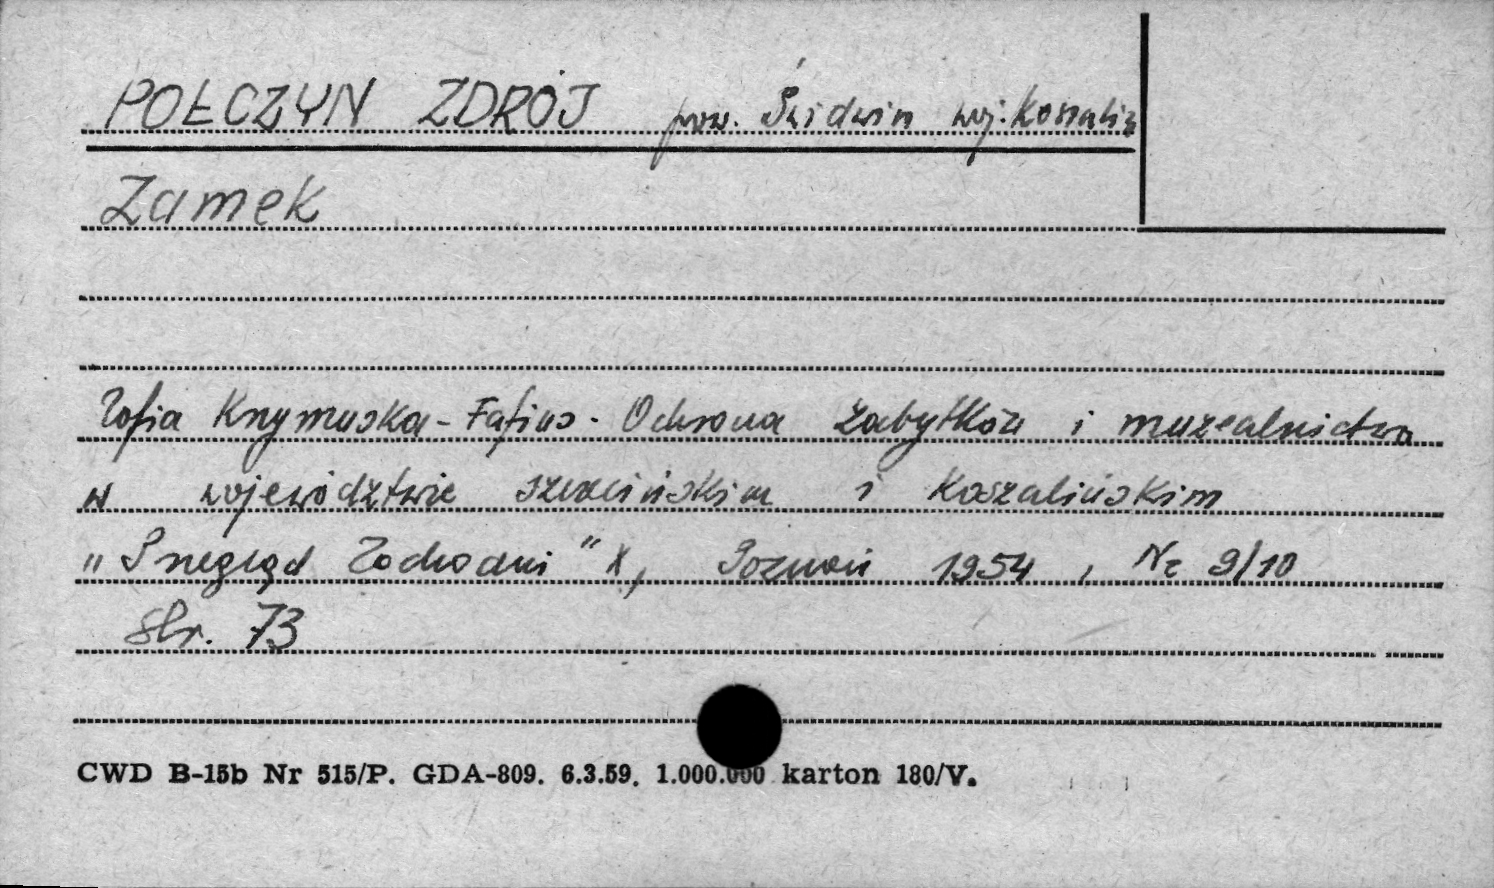 POŁCZYN ZDRÓJ pow. Świdwin woj. Koszalin
Zamek
Zofia Krzymuska-Fafius. Ochrona zabytków i muzealnictwo
w województwie szczecińskim i koszalińskim
"Przegląd Zachodni" X, Poznań 1954, Nr 9/10
Str. 73
CWD B-15b Nr 515/P. GDA-809. 6.3.59. 1.000.000 karton 180/V.